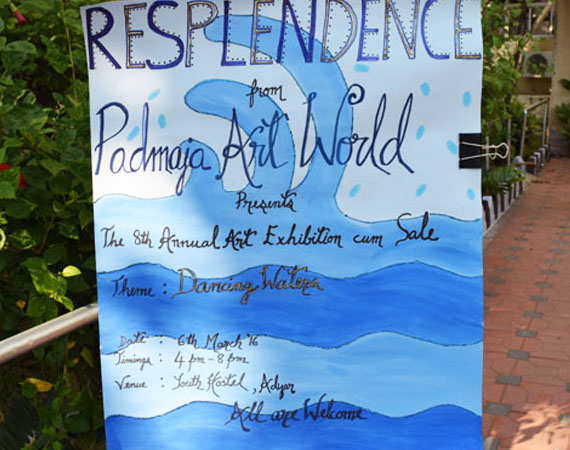 RESPLENDENCE
from
Padmaja Art World
Presents
The 8th Annual Art Exhibition cum Sale
Theme : Dancing Waters
Date : 6th March '16
Timings : 4 pm - 8 pm
Venue : Youth Hostel, Adyar
All are Welcome